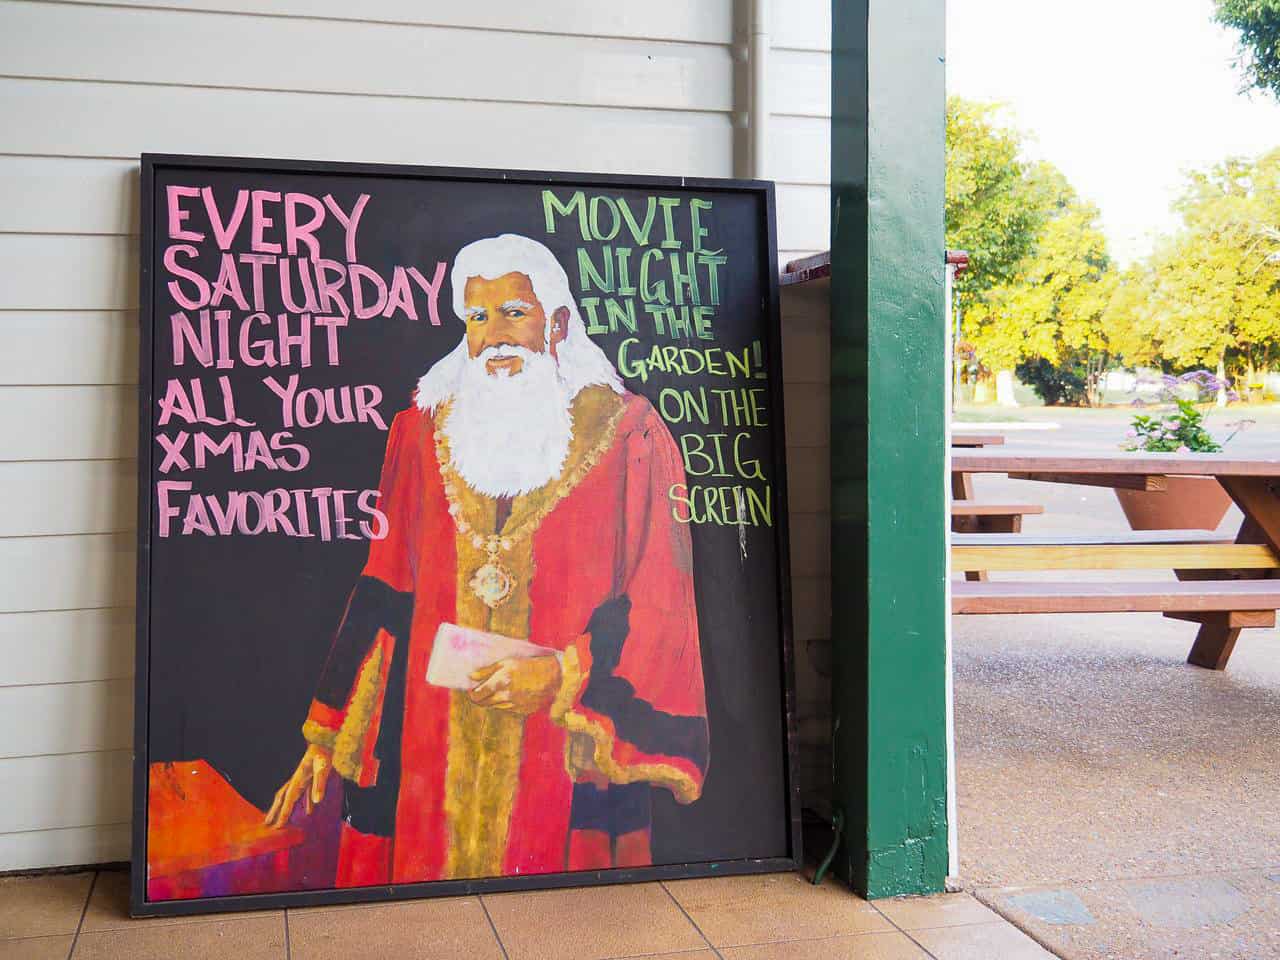 EVERY
SATURDAY
NIGHT
ALL YOUR
XMAS
FAVORITES
MOVIE
NIGHT
IN THE
GARDEN!
ON THE
BIG
SCREEN